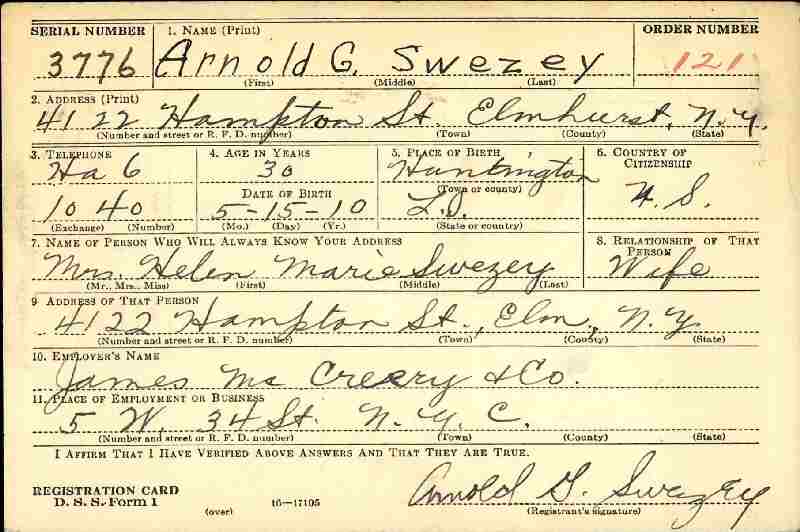 SERIAL NUMBER 1. NAME (Print) ORDER NUMBER
3776 Arnold G. Swezey 121
(First) (Middle) (Last)
2. ADDRESS (Print)
4122 Hampton St. Elmhurst, N.Y.
(Number and street or R. F. D. number) (Town) (County) (State)
3. TELEPHONE 4. AGE IN YEARS 5. PLACE OF BIRTH 6. COUNTRY OF CITIZENSHIP
Ha 6 30 Huntington
DATE OF BIRTH (Town or county) U.S.
1040 5-15-10 L.I.
(Exchange) (Number) (Mo.) (Day) (Yr.) (State or country)
7. NAME OF PERSON WHO WILL ALWAYS KNOW YOUR ADDRESS 8. RELATIONSHIP OF THAT PERSON
Mrs. Helen Marie Swezey Wife
(Mr., Mrs., Miss) (First) (Middle) (Last)
9 ADDRESS OF THAT PERSON
4122 Hampton St., Elm., N.Y.
(Number and street or R. F. D. number) (Town) (County) (State)
10. EMPLOYER'S NAME
James Mc Creery & Co.
11. PLACE OF EMPLOYMENT OR BUSINESS
5 W. 34 St. N.Y.C.
(Number and street or R. F. D. number) (Town) (County) (State)
I AFFIRM THAT I HAVE VERIFIED ABOVE ANSWERS AND THAT THEY ARE TRUE.
REGISTRATION CARD Arnold G. Swezey
D. S. S. Form 1 (over) 16—17105 (Registrant's signature)